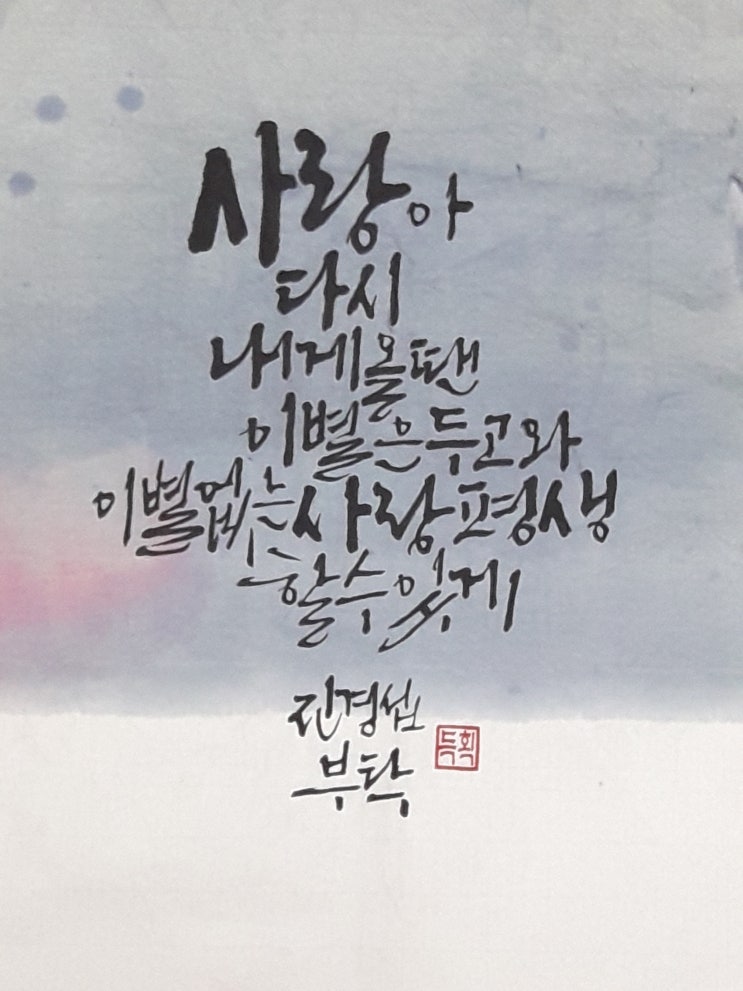 사랑아
다시
내게올땐
이별은두고와
이별없는사랑평생
할수있게
진경섭
부탁
득획